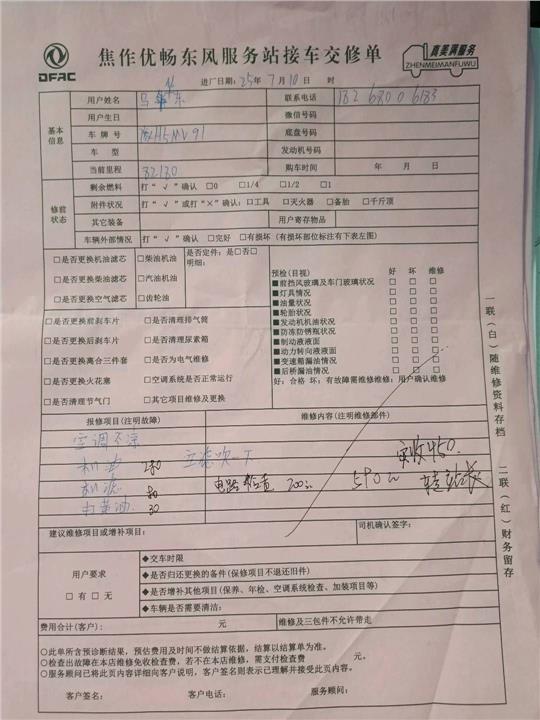 DFAC
焦作优畅东风服务站接车交修单
真美满服务
ZHENMEIMANFUWU
进厂日期：25年 7月10日 时
基本信息
用户姓名
联系电话
用户生日
微信号码
车牌号
底盘号
车型
发动机号码
当前里程
购车时间 年 月 日
修前状态
剩余燃料 打“√”确认 □0 □1/4 □1/2 □1
附件状况 打“√”或打“×”确认：□工具 □灭火器 □备胎 □千斤顶
其它装备
用户寄存物品
车辆外部情况 打“√”确认 □完好 □有损坏（有损坏部位标注有下表左图）
□是否更换机油滤芯 □柴油机油 是否定件：是□否□
明细：
□是否更换柴油滤芯 □汽油机油
□是否更换空气滤芯 □齿轮油
预检(目视) 好 坏 维修
■前挡风玻璃及车门玻璃状况 □ □ □
■灯具情况 □ □ □
■油量状况 □ □ □
■轮胎状况 □ □ □
■发动机机油状况 □ □ □
■防冻防锈瓶状况 □ □ □
■制动液液面 □ □ □
■动力转向液液面 □ □ □
■变速箱漏油情况 □ □ □
■后桥漏油情况 □ □ □
好：合格 坏：有故障需维修维修：用户确认维修
□是否更换前刹车片 □是否清理排气筒
□是否更换后刹车片 □是否清理尿素箱
□是否更换离合三件套 □是否为电气维修
□是否更换火花塞 □空调系统是否正常运行
□是否清理节气门 □其它项目维修及更换
报修项目(注明故障)
维修内容(注明维修部件)
空调不凉
机油 280
实收450.
机滤 80
电路检查 200
590元
打黄油 30
建议维修项目或增补项目：
司机确认签字：
用户要求
□有□无
◆交车时限
◆是否归还更换的备件(保修项目不退还旧件)
◆是否增补其他项目(保养、年检、空调系统检查、加装项目等)
◆车辆是否需要清洁：
费用合计(客户)： 元
维修及三包件不允许带走
○此单所含预诊断结果，预估费用及时间不做结算依据，结算以结算单为准。
○检查出故障在本店维修免收检查费，若不在本店维修，需支付检查费 元。
○服务顾问已将此页内容详细向客户说明，客户签名则表示已理解并接受此页内容。
客户签名： 客户电话： 服务顾问：
一联（白）随维修资料存档
二联（红）财务留存